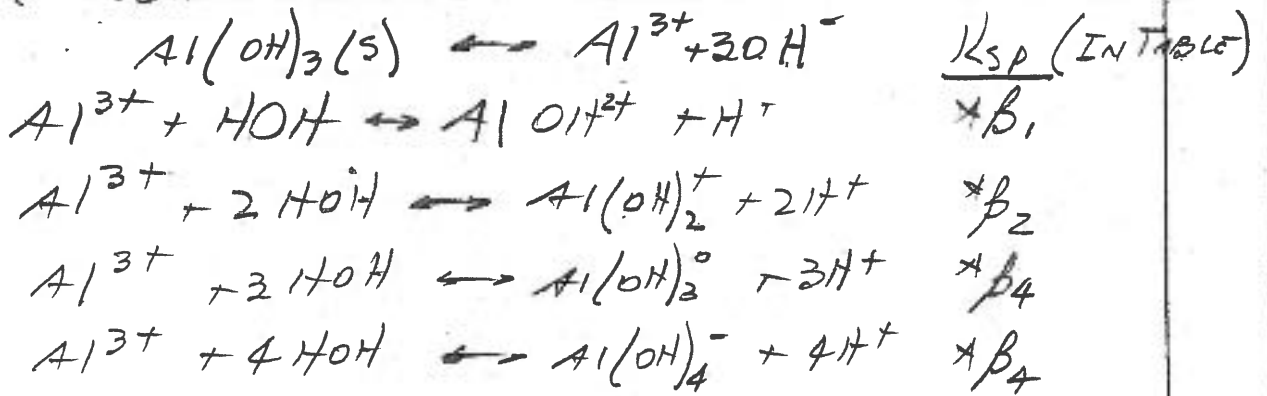 Al(OH)₃(S) ↔ Al³⁺ + 3OH⁻ Ksp (IN TABLE)
Al³⁺ + HOH ↔ AlOH²⁺ + H⁺ *β₁
Al³⁺ + 2HOH ↔ Al(OH)₂⁺ + 2H⁺ *β₂
Al³⁺ + 3HOH ↔ Al(OH)₃⁰ + 3H⁺ *β₄
Al³⁺ + 4HOH ↔ Al(OH)₄⁻ + 4H⁺ *β₄